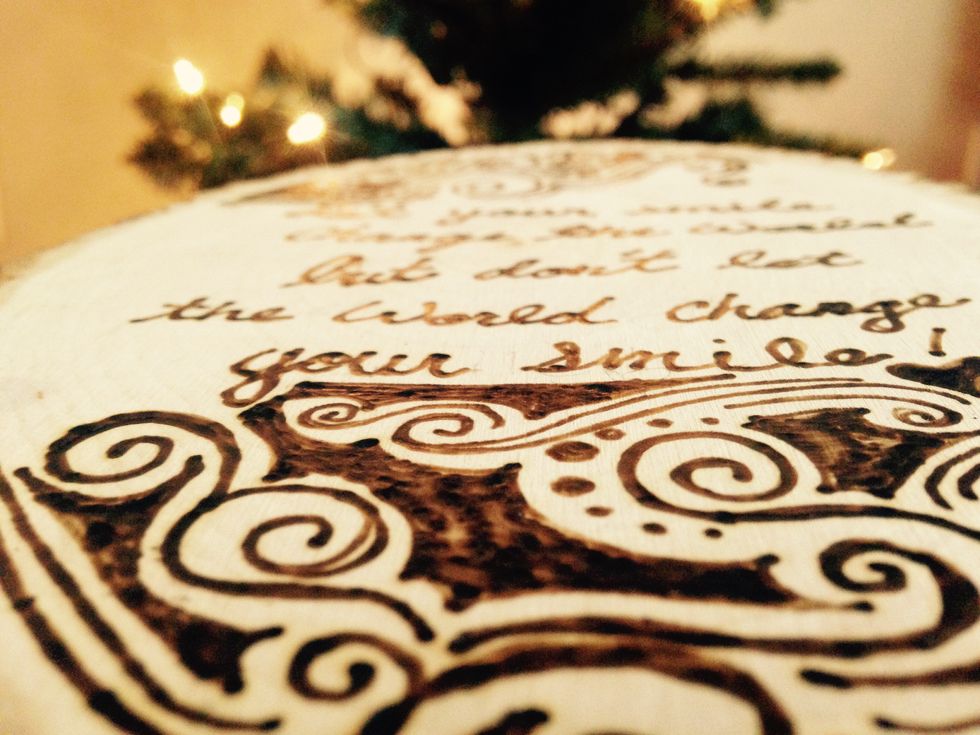 your smile
change the world
but don't let
the World change
your smile!